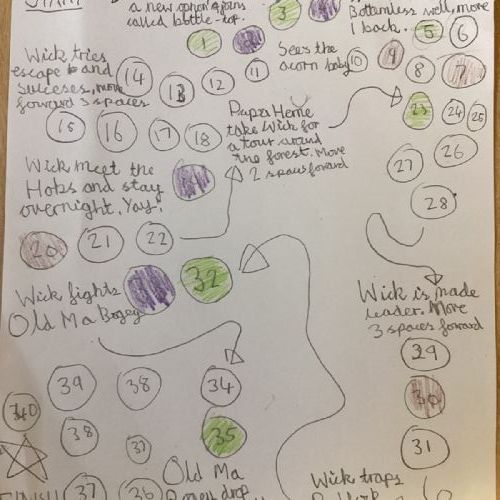 START
a new
called bottle-top.
Bottomless well, move
1 back.
3
1
5
6
Sees the
acorn baby
10
8
7
11
12
13
14
Wick tries
escape and
succeses, move
forward 3 spaces
15
16
17
18
Papa Heme
take Wick for
a tour around
the forest. Move
2 spaces forward
23
24
25
26
27
28
Wick meet the
Hobs and stay
overnight. Yay!
20
21
22
32
Wick fights
Old Ma Bogey
Wick is made
leader. Move
3 spaces forward
29
30
31
34
35
39
38
40
38
37
37
36
Old Ma
Bogey drop
Wick traps
FINISH